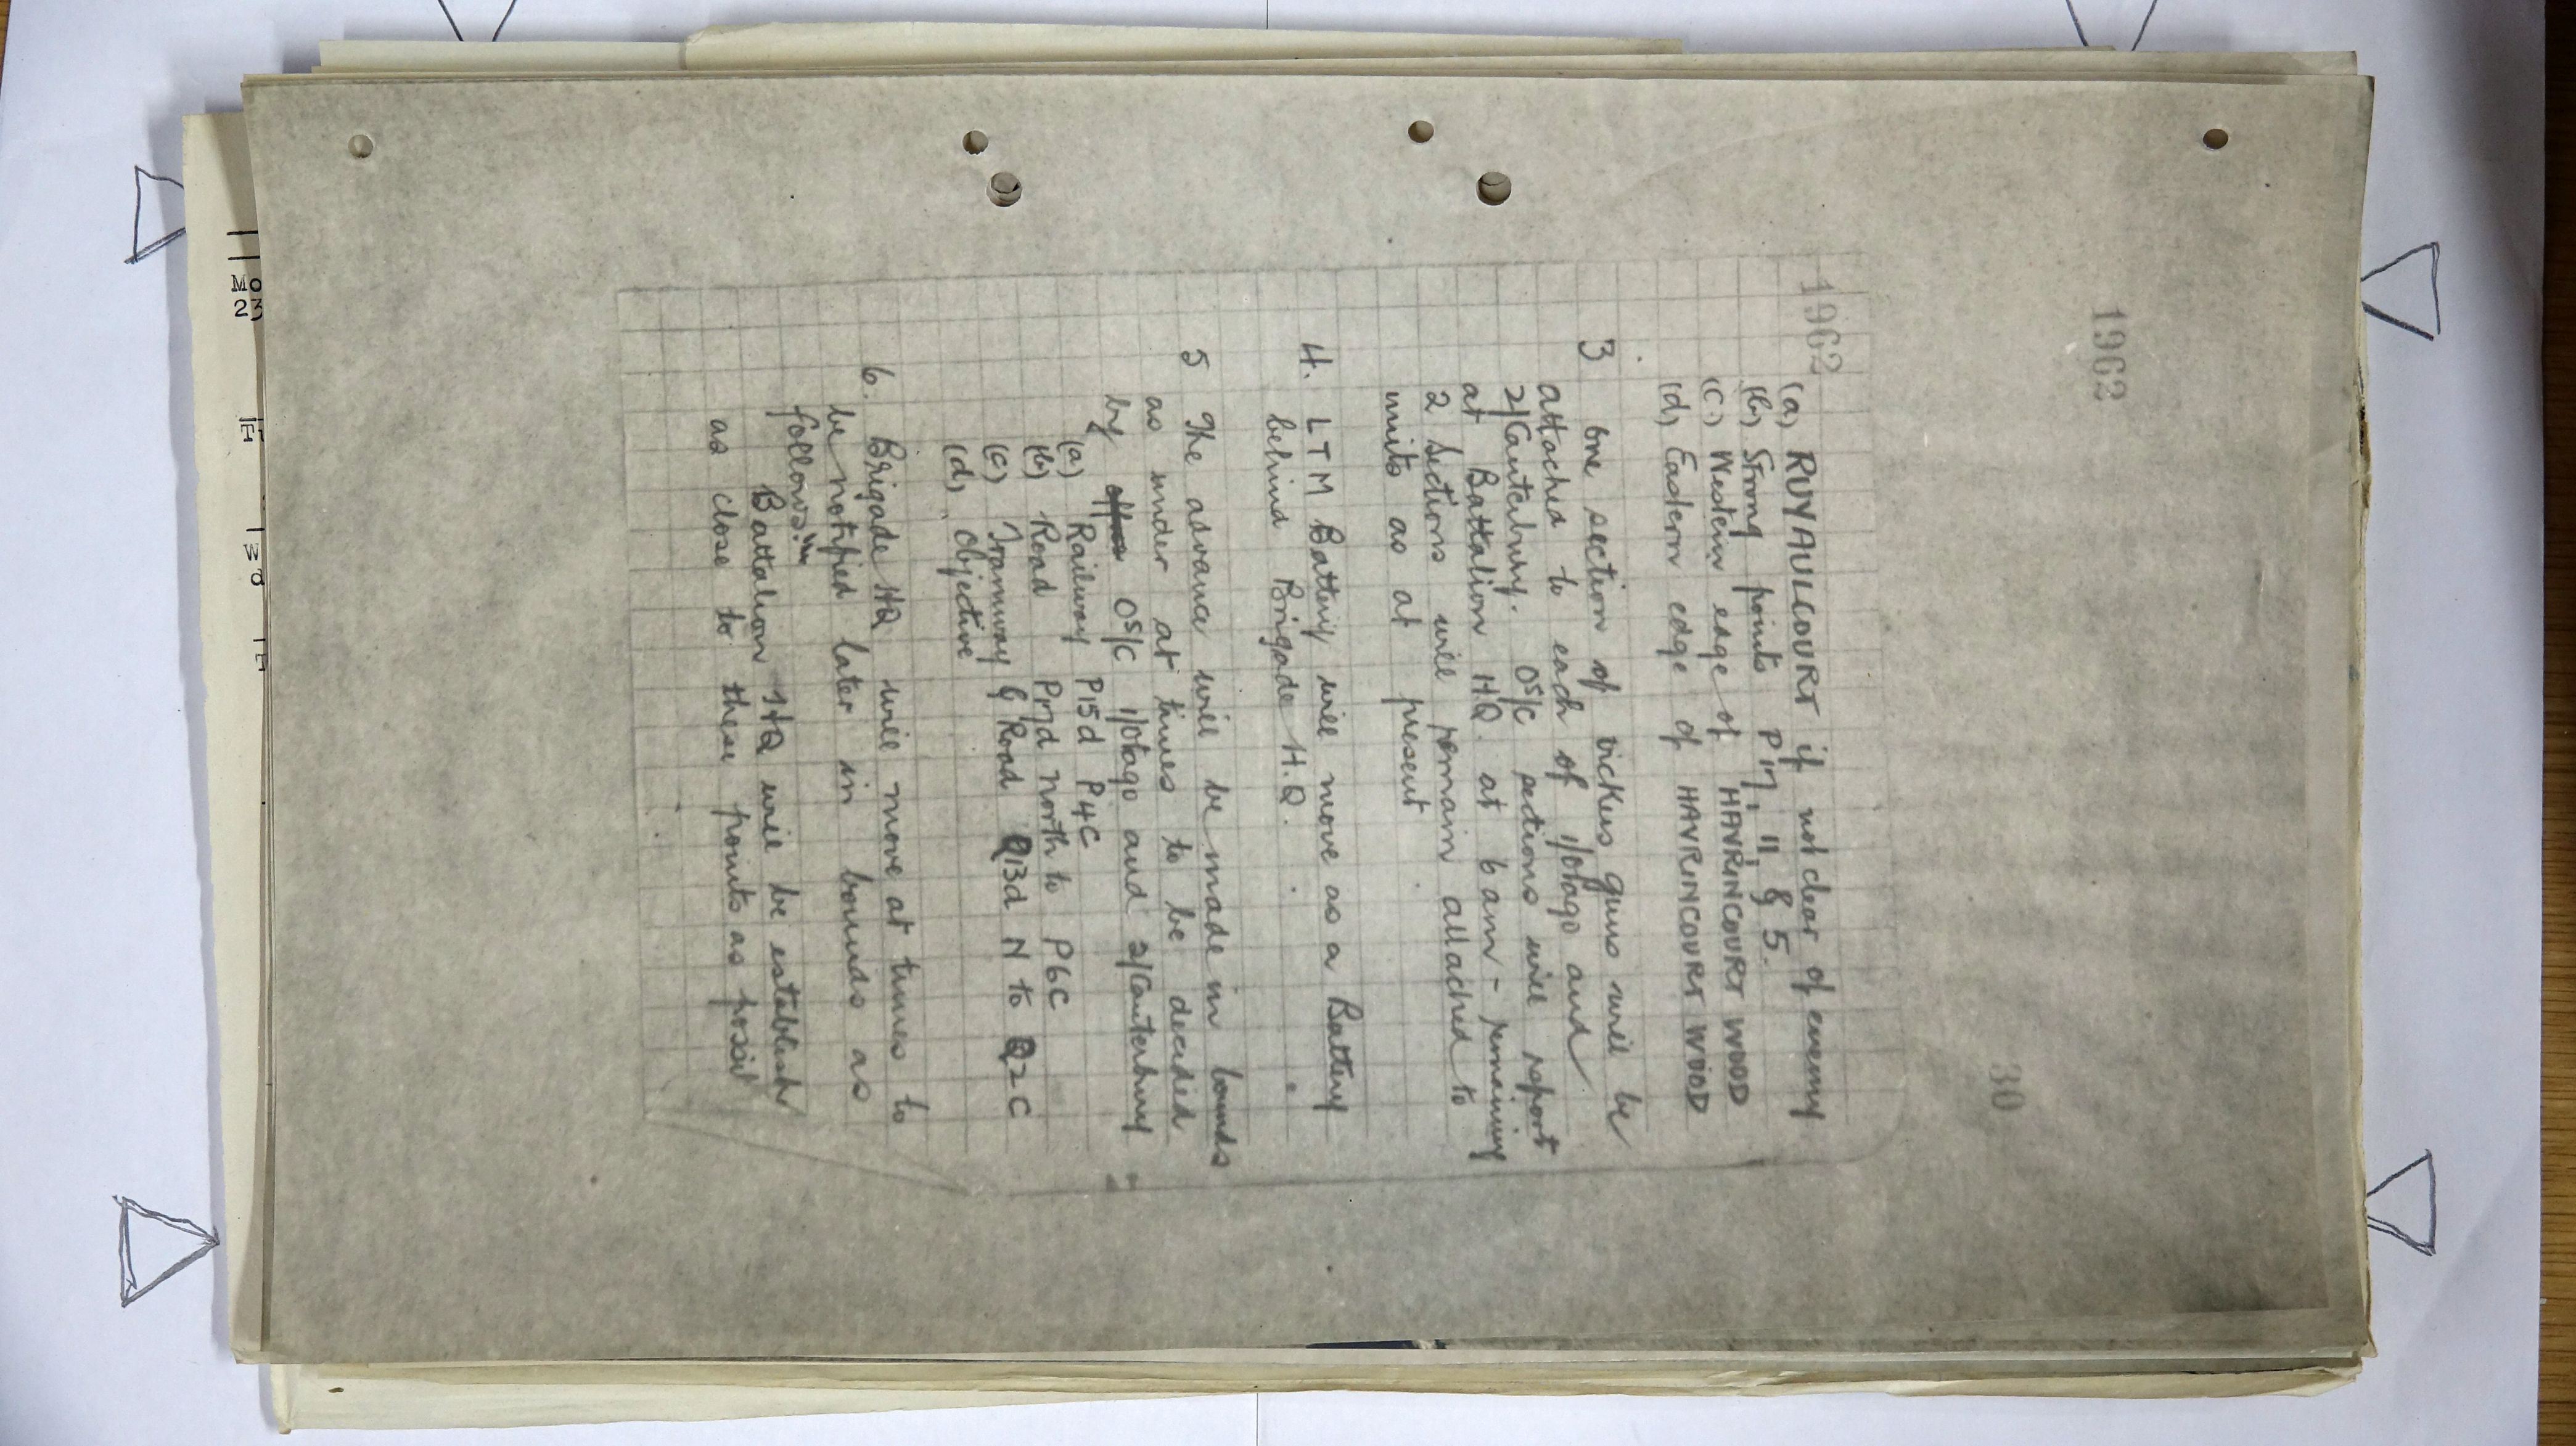 1962
1962
30
(a) RUYAULCOURT if not clear of enemy
(b) Strong points P17, 11, & 5.
(c) Western edge of HAVRINCOURT WOOD
(d) Eastern edge of HAVRINCOURT WOOD
3 One section of Vickers guns will be
attached to each of 1/Otago and
2/Canterbury. Os/C sections will report
at Battalion H.Q. at 6 am - remaining
2 Sections will remain attached to
units as at present.
4. LTM Battery will move as a Battery
behind Brigade H.Q.
5 The advance will be made in bounds
as under at times to be decided
by Os/C 1/Otago and 2/Canterbury
(a) Railway P15d P4C
(b) Road P17d North to P6C
(c) Tramway & Road Q13d N to Q2C
(d) Objective
6. Brigade HQ will move at times to
be notified later in bounds as
follows:-
Battalion HQ will be establish
as close to these points as possib
Mo
23